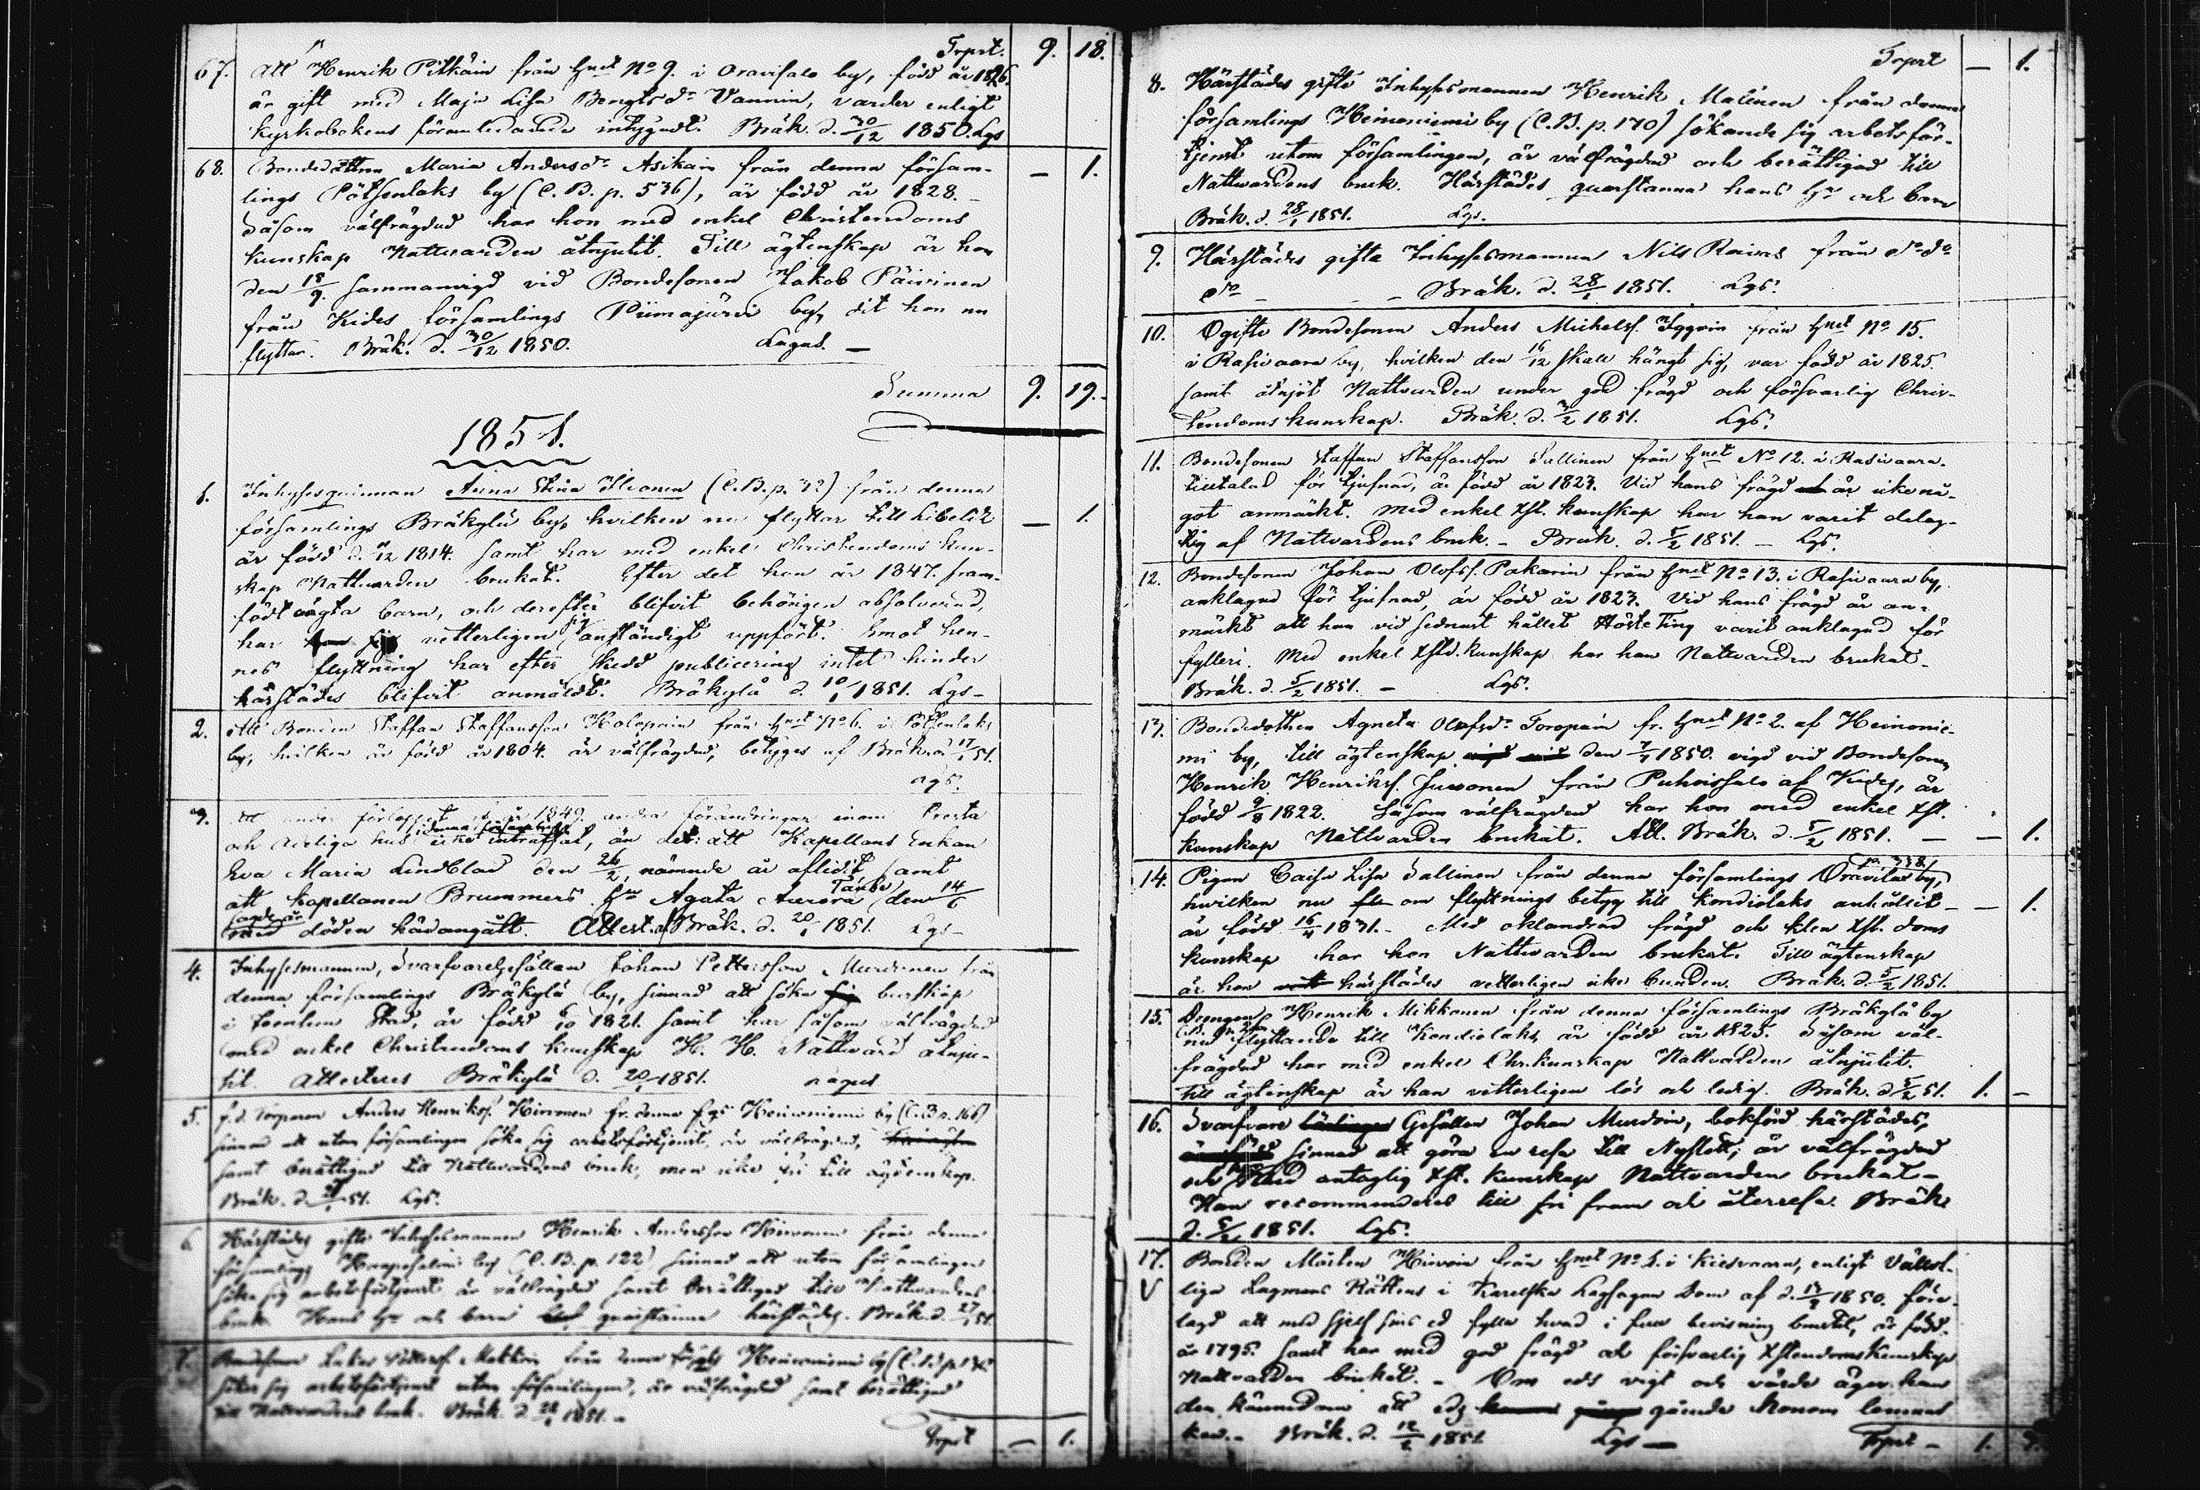 Trprt. 9. 18.
67. Att Henrik Pitkäin från hmt No 9. i Oravisalo by, född år 1826.
är gift med Maja Lisa Bengtsdr Vannin, varder enligt
kyrkobokens föranledande intygadt. Bräk. d. 30/12 1850. Lgs
68. Bondedottren Maria Andersdr Asikain från denna försam- — 1.
lings Pötsenlaks by (C. B. p. 536), är född år 1828. –
Såsom välfrägdad har hon med enkel Christendoms
kunskap Nattvarden åtnjutit. Till ägtenskap är hon
den 15/9. sammanvigd vid Bondesonen Jakob Päivinen
från Kides församlings Piimajärvi by, dit hon nu
flyttar. Bräk. d. 30/12 1850. Lagus. —
Summa 9. 19.
1851.
1. Inhysesqvinnan Anna Stina Ilionen (C.B.p. 32) från denna
församlings Bräkylä by, hvilken nu flyttar till Libelitz — 1.
är född d. /12 1814. samt har med enkel Christendoms kun-
skap Nattvarden brukat. Efter det hon år 1847. fram-
födt oägta barn, och derefter blifvit behörigen absolverad,
har vetterligen sig anständigt uppfört. Emot hen-
nes flyttning har efter skedd publicering intet hinder
härstädes blifvit anmäldt. Bräkylä d. 10/1 1851. Lgs –
2. Att Bonden Staffan Staffansson Holopain från hmt No 6. i Pötsenlaks
by, hvilken är född år 1804. är välfrägdad, betyges af Bräk. d. 17/1 51.
Lgs.
3. Att under förloppet af år 1849. andra förändringar inom Presta
och Adeliga hus i denna församling icke inträffat, än det: att Kapellans Enkan
Eva Maria Lindblad den 26/2, nämnde år aflidit samt
att Kapellanen Brummers hu Agata Aurora Taube den 14/6
samma år med döden hädangått. Attest. Bräk. d. 20/1 1851. Lgs –
4. Inhysesmannen, Svarfvaregesällen Johan Pettersson Murdonen från
denna församlings Bräkylä by, sinnad att söka burskap
i Joensuu Stad, är född /10 1821. samt har såsom välfrägdad
med enkel Christendoms kunskap H. H. Nattvard åtnju-
tit. Attesteras Bräkylä d. 20/1 1851. Lagus
5. f. d. Torparen Anders Henrikss. Hirvonen fr. denna fgs Heinoniemi by (C.B.p. 166)
sinnad att utom församlingen söka sig arbetsförtjenst, är välfrägdad,
samt berättigad till Nattvardens bruk, men icke fri till ägtenskap.
Bräk. d. 51. Lgs.
6. Härstädes gifte Inhysesmannen Henrik Andersson Hirvonen från denna
församlings by (C. B. p. 122) sinnad att utom församlingen
söka sig arbetsförtjenst är välfrägdad samt berättigad till Nattvardens
bruk. Hans hu och barn qvarstanna härstädes. Bräk. d. 27/1 51.
7. Bondesonen från denna Heinoniemi by (C. B. p.
söker sig arbetsförtjenst utom församlingen, är välfrägdad samt berättigad
till Nattvardens bruk. Bräk. d. 28/1 1851. –
Trprt — 1.
Trprt — 1.
8. Härstädes gifte Inhysesmannen Henrik Matinen från denna
församlings Heinoniemi by (C. B. p. 170) sökande sig arbetsför-
tjenst utom församlingen, är välfrägdad och berättigad till
Nattvardens bruk. Härstädes qvarstanna hans hu och barn
Bräk. d. 28/1 1851. Lgs.
9. Härstädes gifte Inhysesmannen Nils Raivas från do do
do – – – Bräk. d. 28/1 1851. Lgs.
10. Ogifte Bondesonen Anders Michelss. Iggoin från hmt No 15.
i Rasivaara by, hvilken den 16/12 skall hängt sig, var född år 1825.
samt åtnjöt Nattvarden under god frägd och försvarlig Chris-
tendoms kunskap. Bräk. d. 3/2 1851. Lgs.
11. Bondesonen Staffan Staffansson Sallinen från hmt No 12. i Rasivaara.
tilltalad för tjufnad, är född år 1823. Vid hans frägd är icke nå-
got anmärkt. Med enkel Xst. kunskap har han varit delag-
tig af Nattvardens bruk. – Bräk. d. 5/2 1851. – Lgs.
12. Bondesonen Johan Olofss. Pakarin från hmt No 13. i Rasivaara by,
anklagad för tjufnad, är född år 1823. Vid hans frägd är an-
märkt att han vid sednast hållet Höste Ting varit anklagad för
fylleri. Med enkel Xstd. kunskap har han Nattvarden brukat.
Bräk. d. 5/2 1851. – Lgs.
13. Bondedottren Agneta Olofsdr Toropain fr. hmt No 2. af Heinonie-
mi by, till ägtenskap den 7/1 1850. vigd vid Bondesonen
Henrik Henrikss. Jussonen från Puhoissalo af Kides, är
född 9/8 1822. Såsom välfrägdad har hon med enkel Xst.
kunskap Nattvarden brukat. Att. Bräk. d. 5/2 1851. — — 1.
14. Pigan Caisa Lisa Sallinen från denna församlings Oravilax by, p. 338
hvilken nu om flyttnings betyg till Kondiolaks anhållit — — 1.
är född 16/4 1831. – Med oklandrad frägd och klen Xst. doms
kunskap har hon Nattvarden brukat. Till ägtenskap
är hon härstädes vetterligen icke bunden. Bräk. d. 5/2 1851.
15. Drengen Henrik Mikkonen från denna församlings Bräkylä by
flyttande till Kondiolaks är född år 1825. Såsom väl-
frägdad har med enkel Chr.kunskap Nattvarden åtnjutit.
till ägtenskap är han vetterligen lös och ledig. Bräk. d. 5/2 51. 1. –
16. Svarfvare Gesällen Johan Murdoin, bokförd härstädes,
sinnad att göra en resa till Nyslott; är välfrägdad
och med antaglig Xst. kunskap Nattvarden brukat –
Han recommenderas till fri fram och återresa. Bräk
d. 5/2 1851. Lgs.
17. Bonden Mårten Hirvoin från hmt No 1. i Kiesvaara, enligt Vällof-
V liga Lagmans Rättens i Karelska Lagsagan Dom af d. 1850. före-
lagd att med sjelf sins ed fylla hvad i fulla bevisning brustit, är född
år 1795. samt har med god frägd och försvarlig Xstendomskunskap
Nattvarden brukat. – Om eds vigt och värde äger han
den kännedom att edg gående Honom lemnas
kan. – Bräk. d. 12/2 1851 Lgs — Trprt – 1. 3.